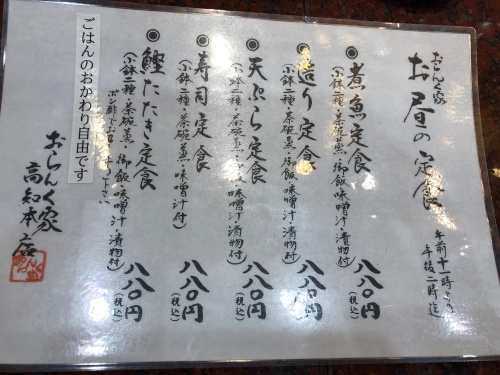 おらんく家
お昼の定食
午前十一時より
午後二時迄
◉煮魚定食
(小鉢二種・茶碗蒸・御飯・味噌汁・漬物付)
八八〇円
(税込)
◉造り定食
(小鉢二種・茶碗蒸・御飯・味噌汁・漬物付)
八八〇円
(税込)
◉天ぷら定食
(小鉢二種・茶碗蒸・御飯・味噌汁・漬物付)
八八〇円
(税込)
◉寿司定食
(小鉢二種・茶碗蒸・味噌汁付)
八八〇円
(税込)
◉鰹たたき定食
(小鉢二種・茶碗蒸・御飯・味噌汁・漬物付)
八八〇円
(税込)
ごはんのおかわり自由です
おらんく家
高知本店